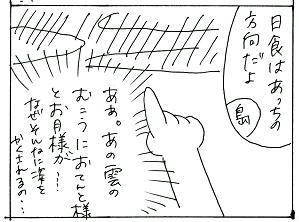 日食はあっちの
方向だよ
島
ああ。あの雲の
むこうにおてんと様
とお月様が…!
なぜそんなに姿を
かくされるの…